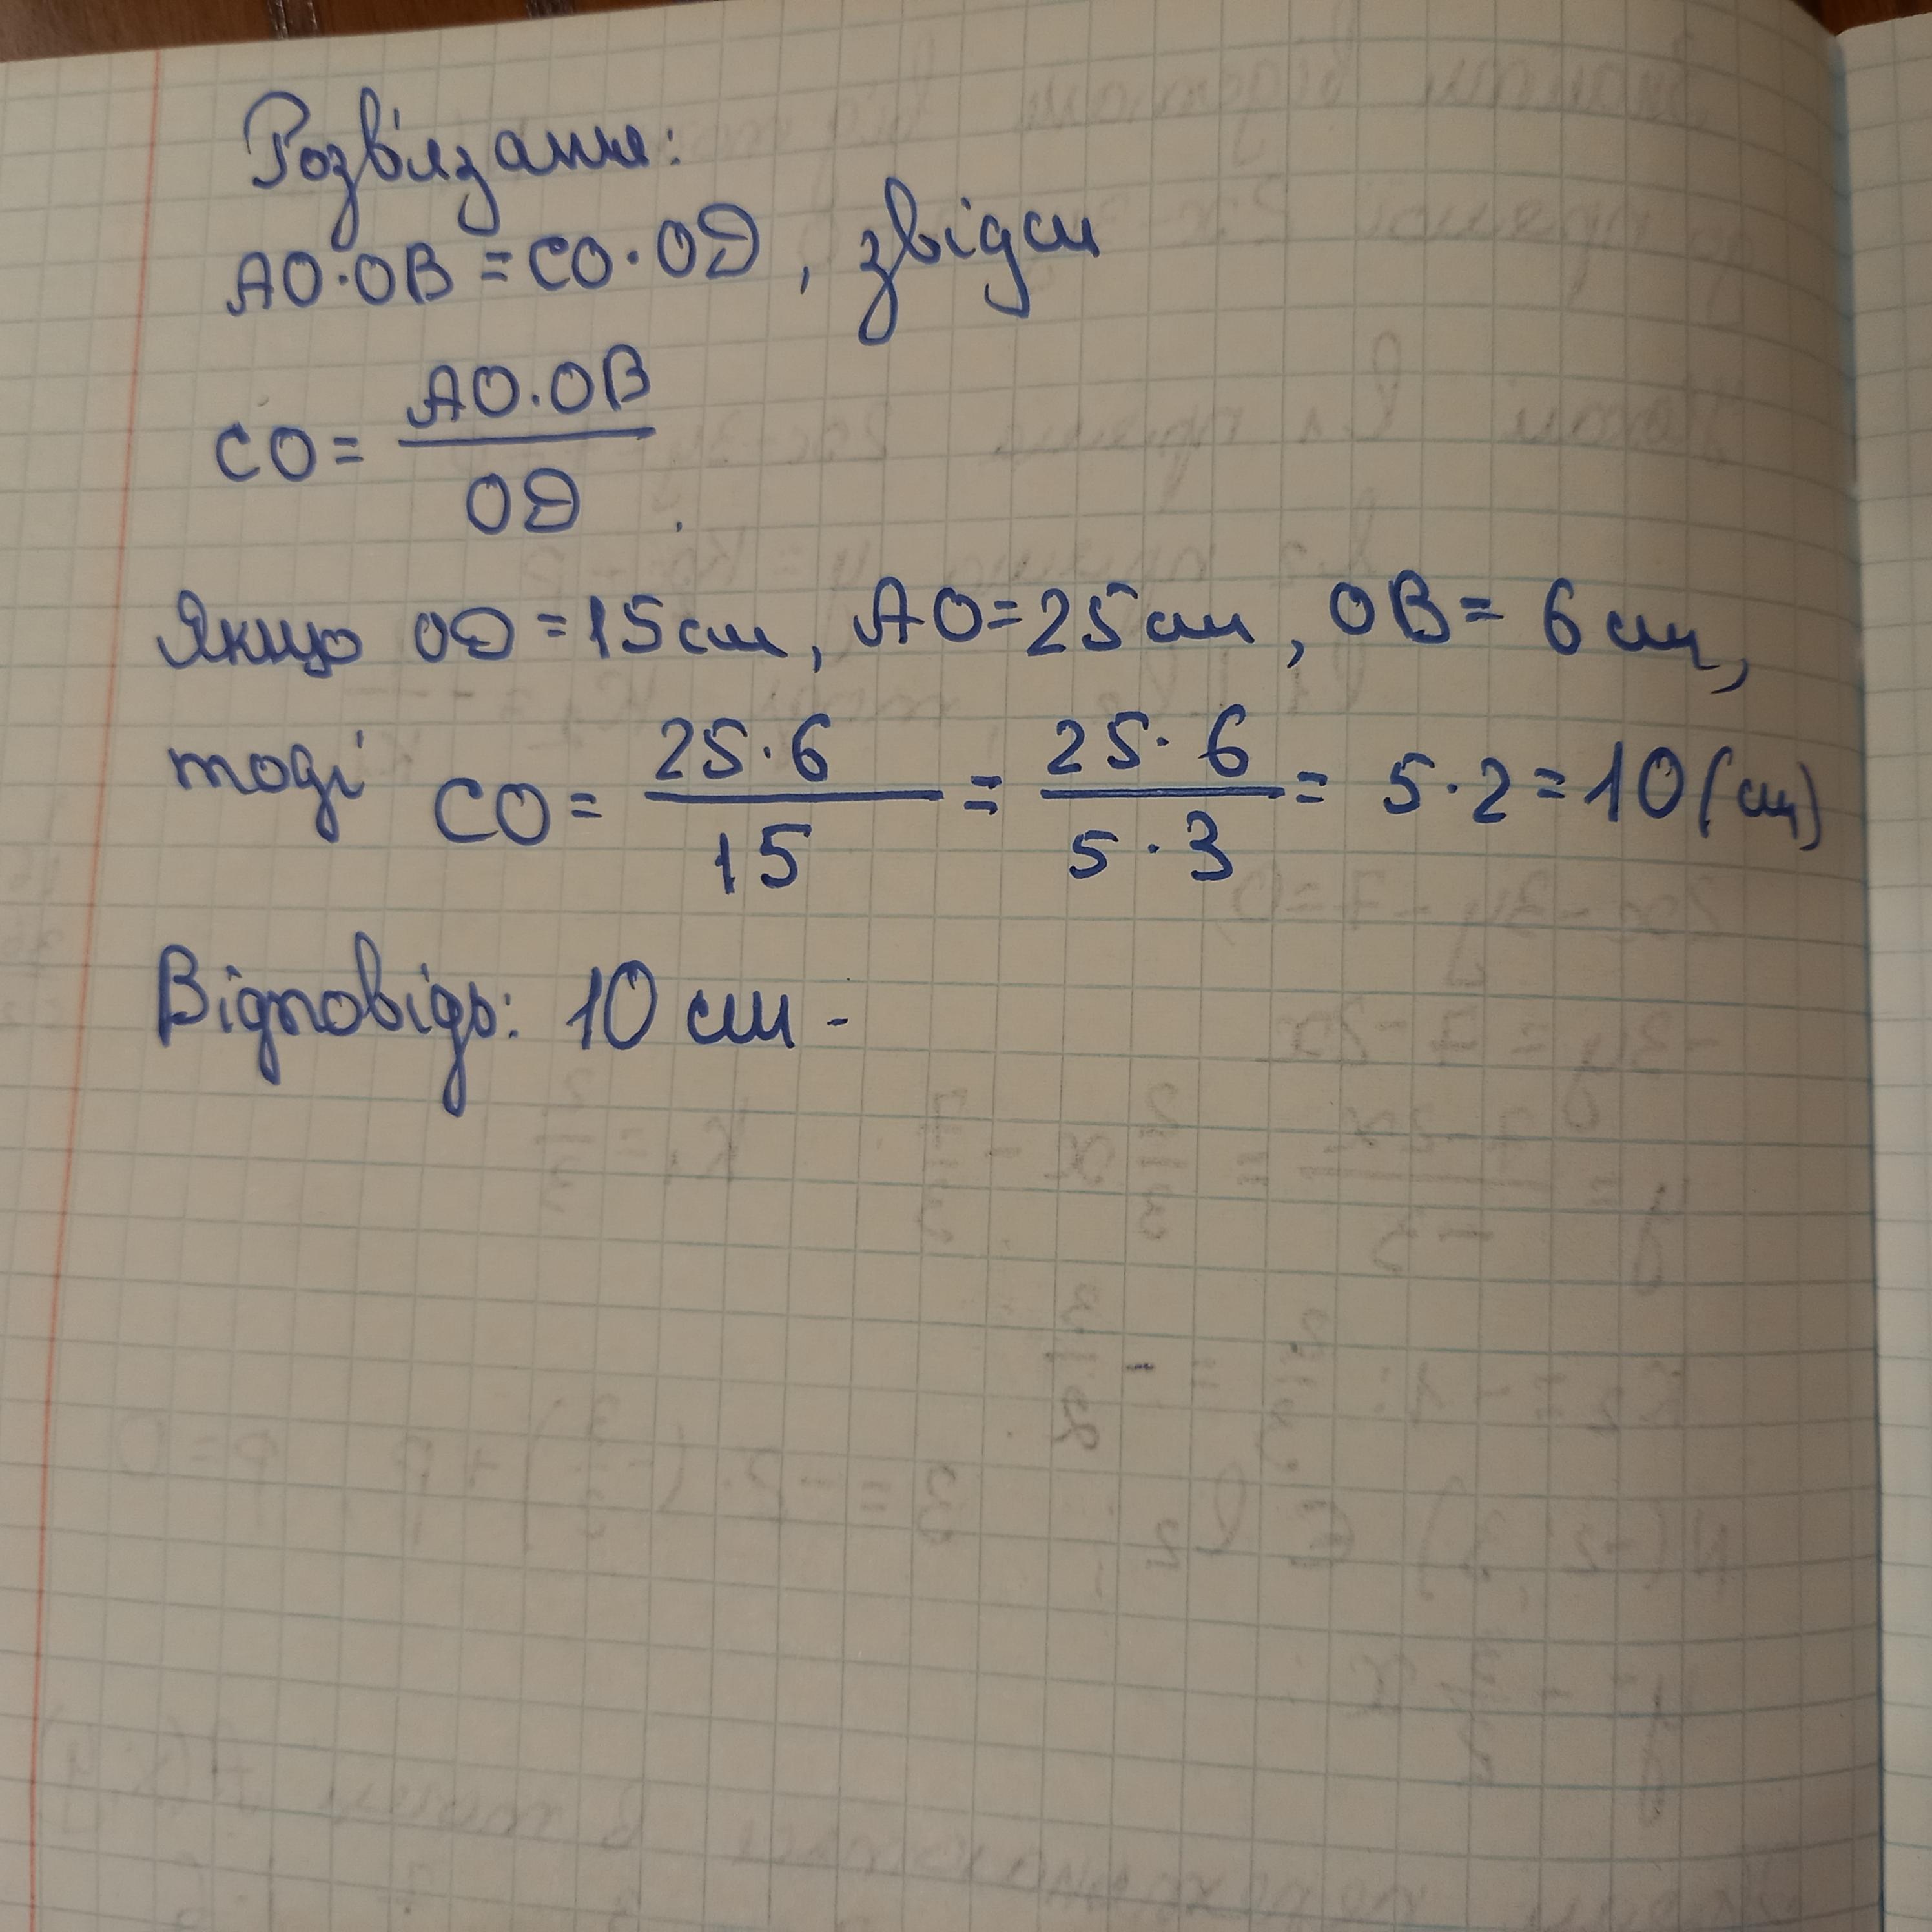 Розв'язання:
AO·OB = CO·OD, звідси
CO = AO·OB / OD.
Якщо OD = 15 см, AO = 25 см, OB = 6 см,
тоді CO = 25·6 / 15 = 25·6 / 5·3 = 5·2 = 10 (см)
Відповідь: 10 см.